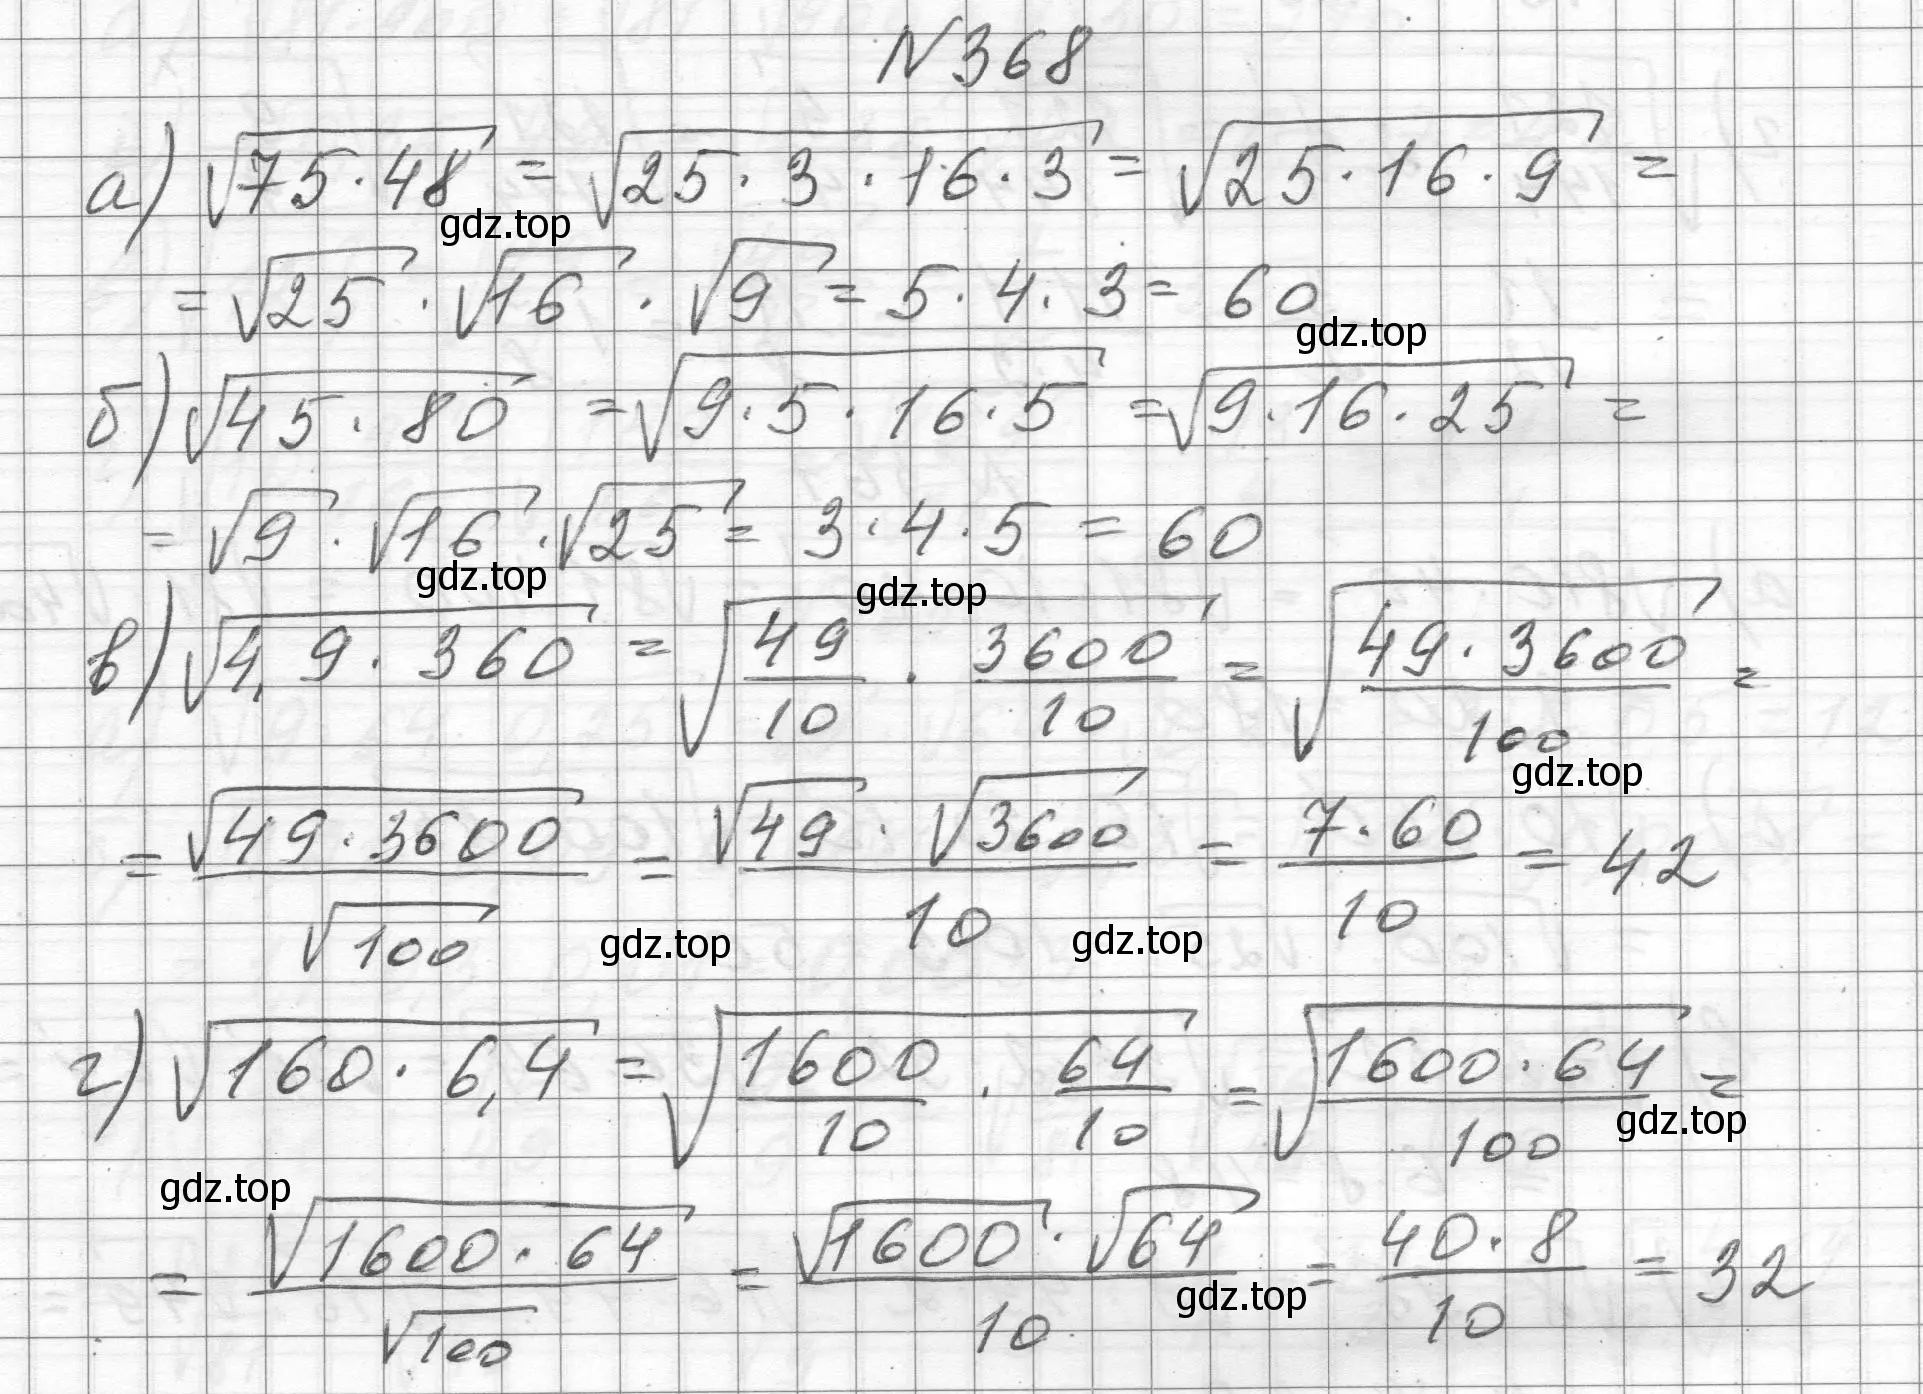 N 368
а) √(75·48) = √(25·3·16·3) = √(25·16·9) =
gdz.top
= √25 · √16 · √9 = 5·4·3 = 60
gdz.top
б) √(45·80) = √(9·5·16·5) = √(9·16·25) =
= √9 · √16 · √25 = 3·4·5 = 60
gdz.top gdz.top
в) √(4,9·360) = √(49/10 · 3600/10) = √((49·3600)/100) =
gdz.top
= √(49·3600)/√100 = (√49 · √3600)/10 = (7·60)/10 = 42
gdz.top gdz.top
г) √(160·6,4) = √(1600/10 · 64/10) = √((1600·64)/100) =
gdz.top
gdz.top
= √(1600·64)/√100 = (√1600 · √64)/10 = (40·8)/10 = 32
gdz.top